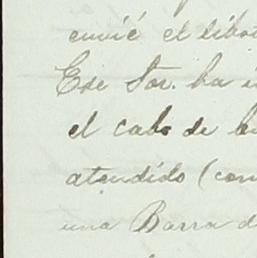 envié el libro
Ese Sor. ha
el cabo de
atendido (con
una Barra d